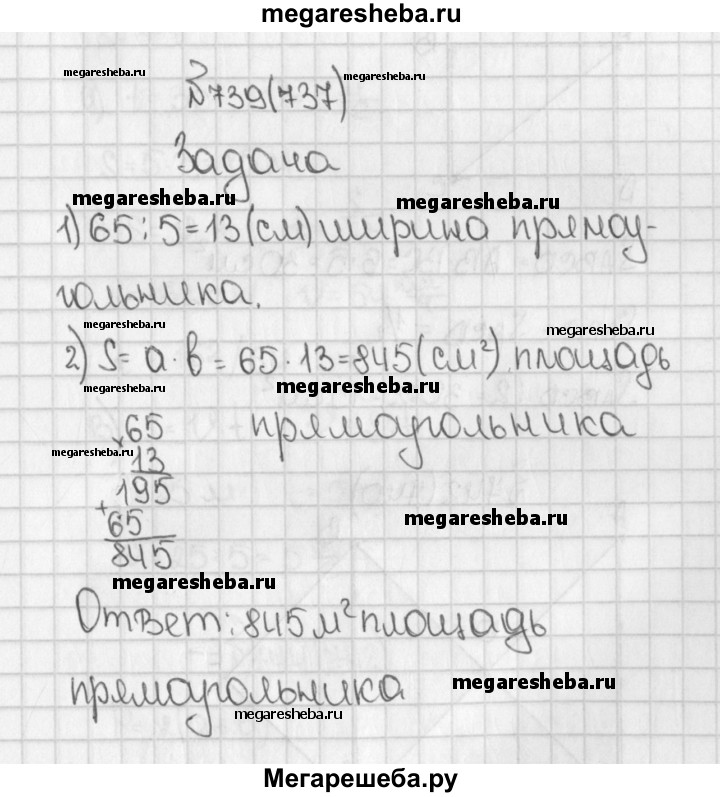 megaresheba.ru
megaresheba.ru
№739(737)
megaresheba.ru
Задача
megaresheba.ru
megaresheba.ru
1) 65:5=13(см) ширина прямоу-
гольника.
megaresheba.ru
megaresheba.ru
2) S= a·b = 65·13=845(см²) площадь
megaresheba.ru
megaresheba.ru
прямоугольника
× 65
megaresheba.ru
13
195
+
65
megaresheba.ru
845
megaresheba.ru
Ответ: 845м² площадь
прямоугольника
megaresheba.ru
megaresheba.ru
Мегарешеба.ру